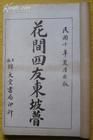 民國十年夏月出版
花間四友東坡夢
上海錦文堂書局印行